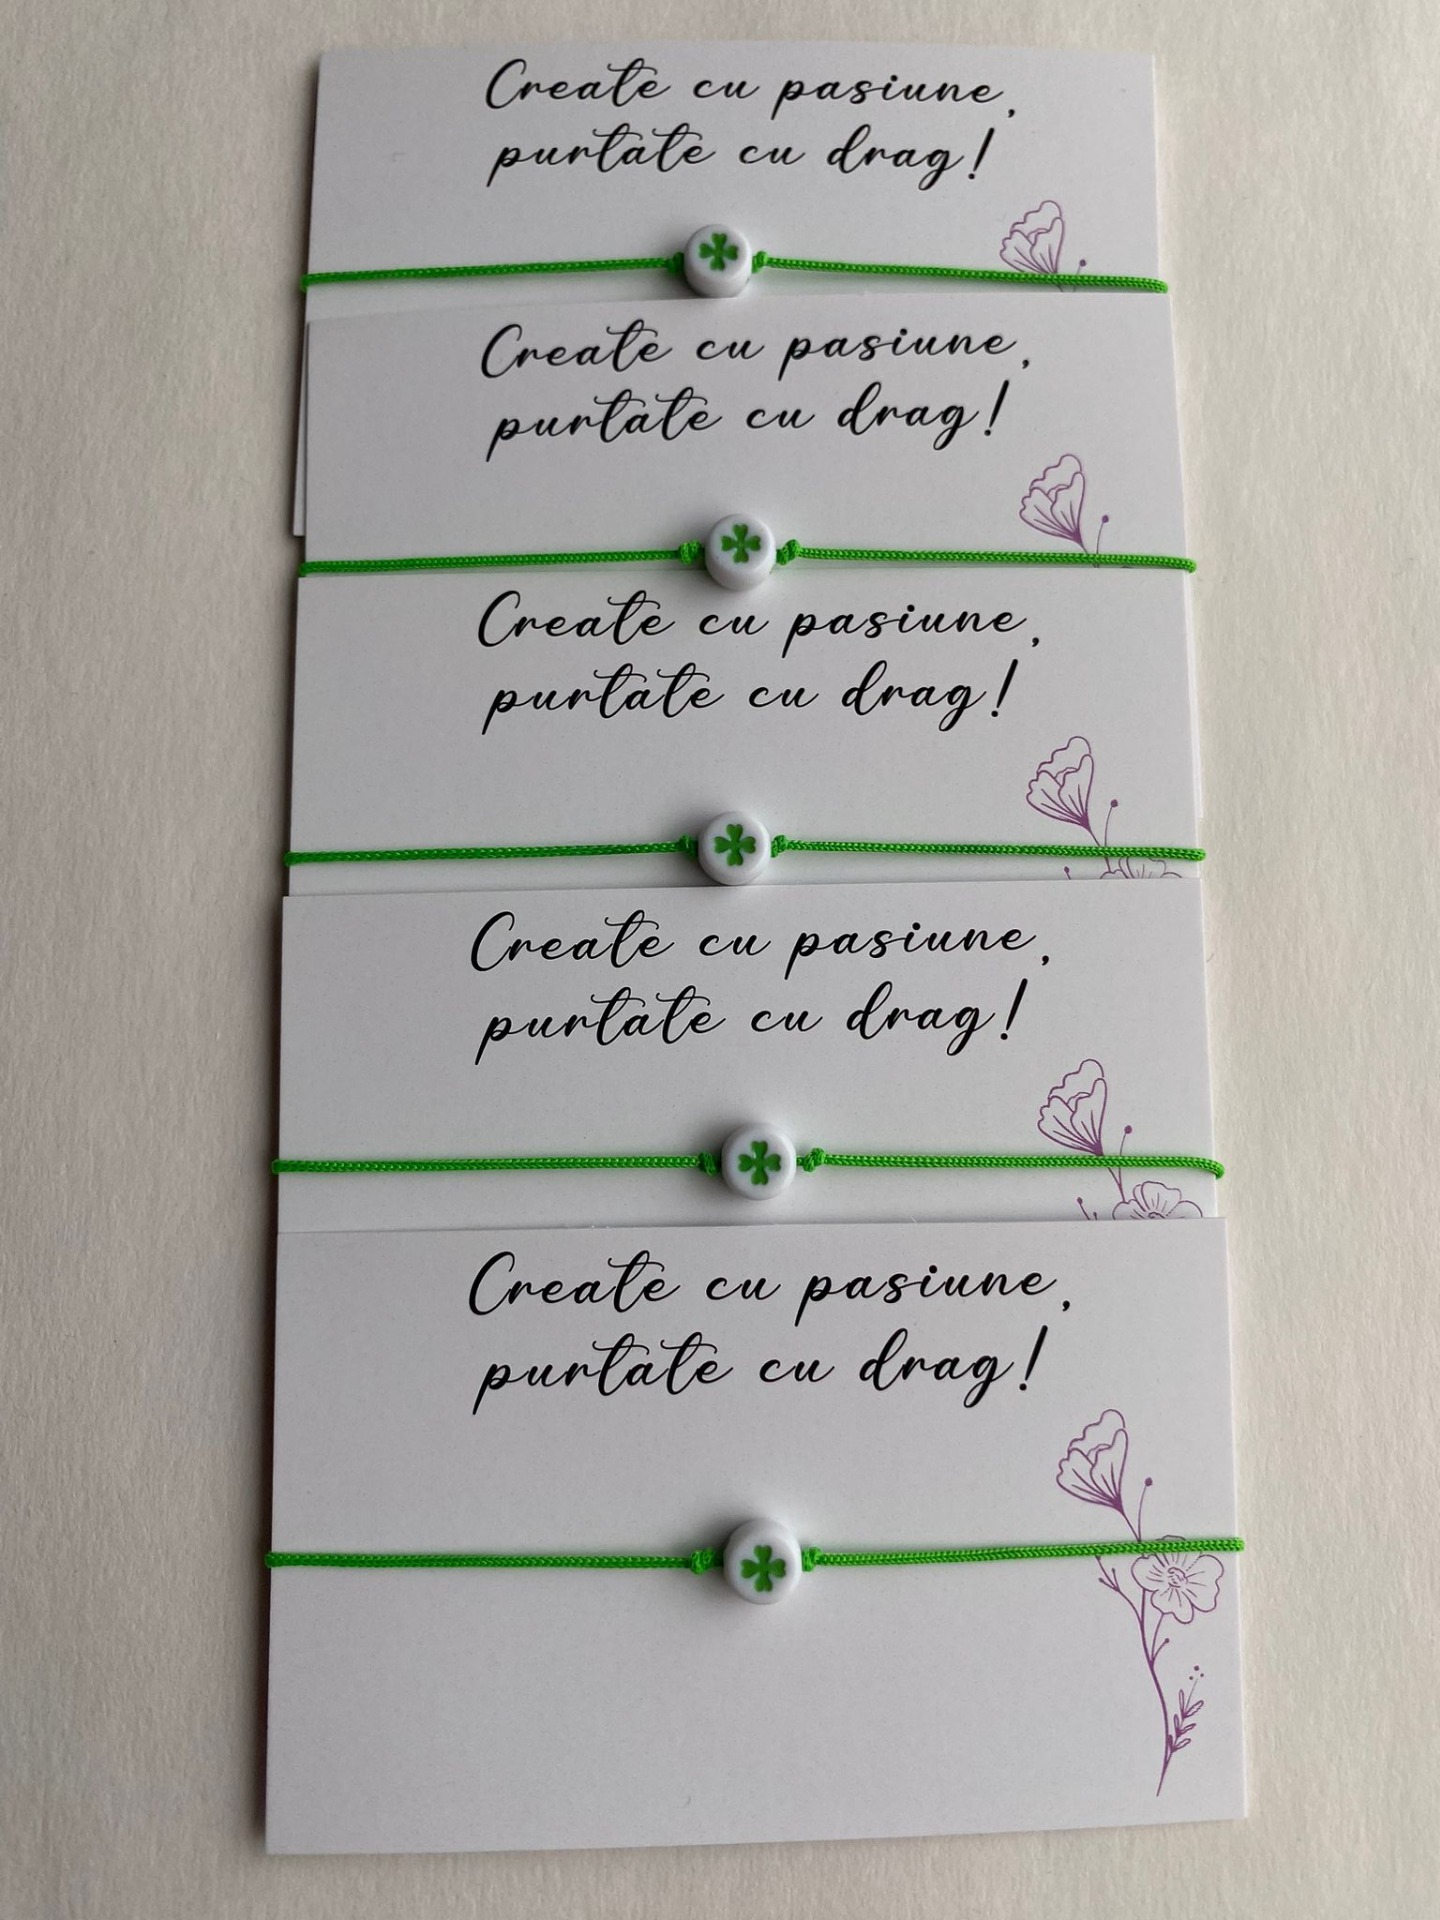 Create cu pasiune,
purtate cu drag!
Create cu pasiune,
purtate cu drag!
Create cu pasiune,
purtate cu drag!
Create cu pasiune,
purtate cu drag!
Create cu pasiune,
purtate cu drag!